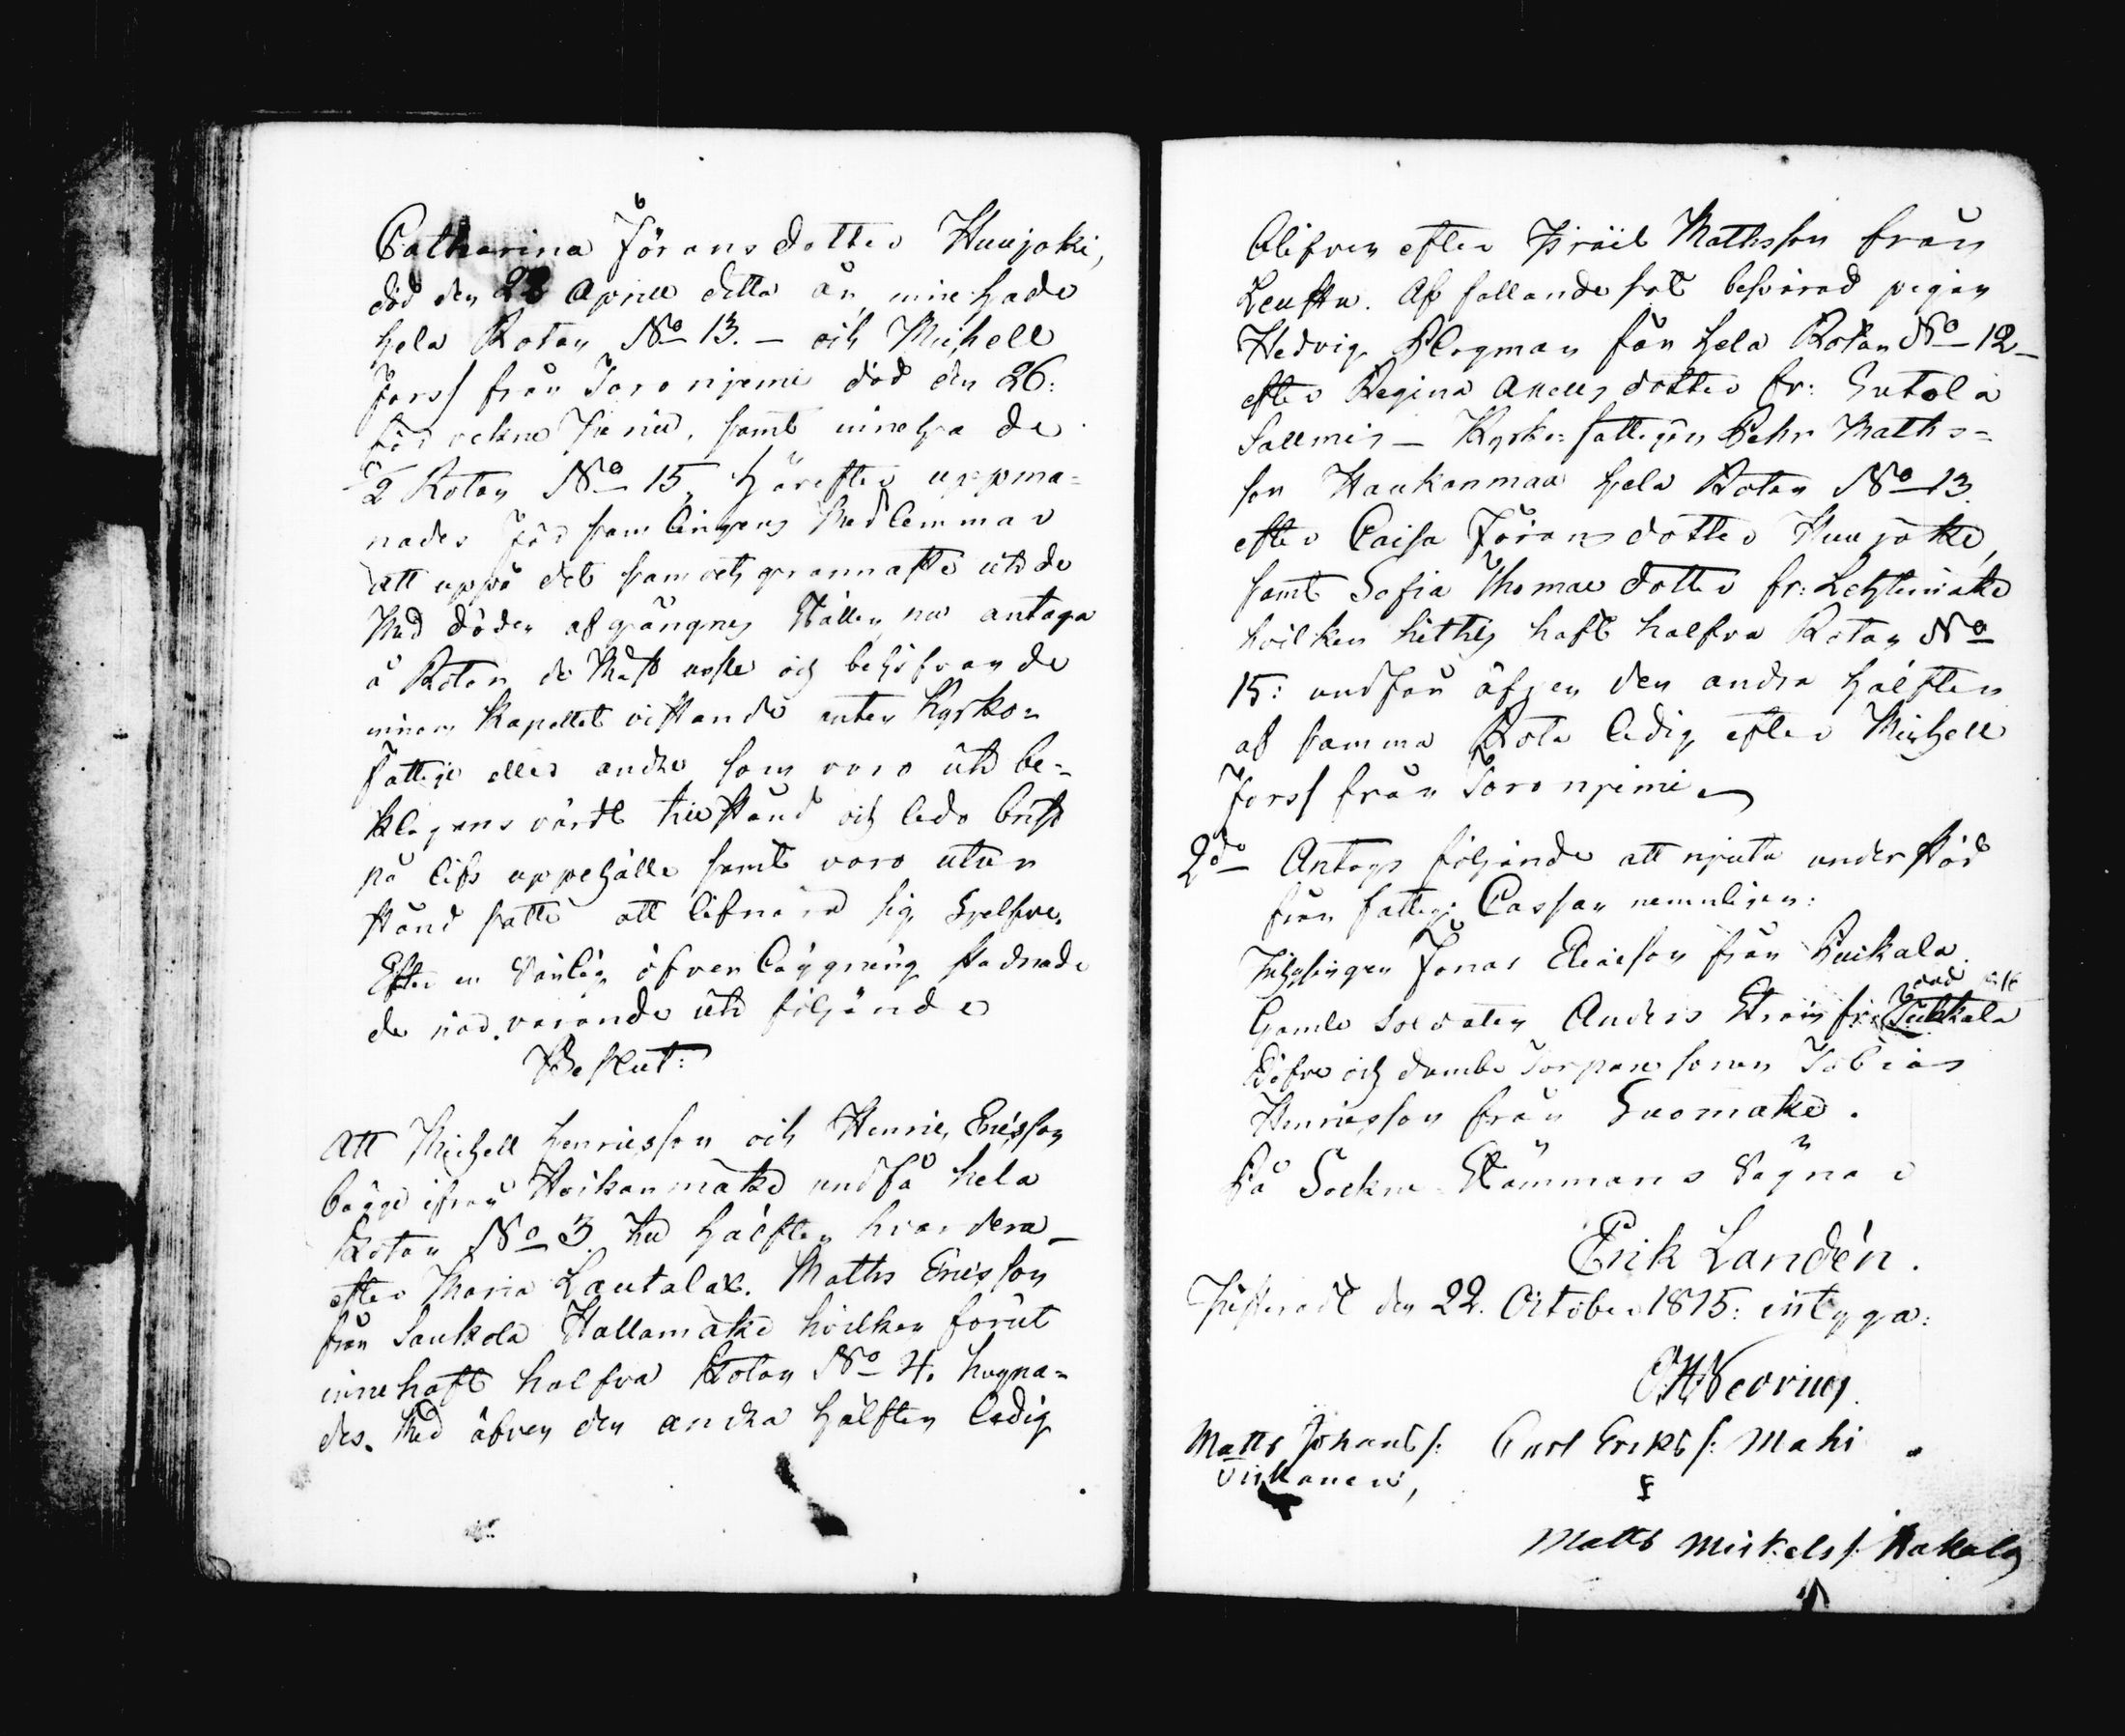 Catharina Jöransdotter Huujoki,
död den 28 April detta år, innehade
hela Rotan No 13. – och Michell
Forss från Toroniemi död den 26:
förvekne Junii, samt innehade
1/2 Rotan No 15, Härefter uppma=
nades Församlingens Medlemmar
att uppå det samvetsgrannaste uti de
med döden afgångnes ställen nu antaga
å Rotan de mäst usle och behöfvande
innom Kapellet vistande antingen Kyrko=
fattige eller andre som voro uti be=
klagansvärdt tillstånd och ledo brist
på lifs uppehälle samt voro utur
stånd satte att lifnära sig sjelfve.
Efter en vänlig öfverläggning stadnade
de närvarande uti följande
Beslut:
Att Michell Henricsson och Henric Ericsson
bägge ifrån Koikanmäki undfå hela
Rotan No 3 till hälften hvardera –
efter Maria Lautala. Matts Ericsson
från Saukola Hallamäki hvilken förut
innehaft halfva Rotan No 4. hugna=
des. Med äfven den andra hälften ledig
blifven efter Isräil Mathsson från
Leustu. Af fallandesot besvärad pigan
Hedvig Blogman får hela Rotan No 12 –
efter Regina dotter fr:
Sallmis – Kyrko=fattigen Pehr Maths=
son Haukanmaa hela Rotan No 13
efter Caisa Jöransdotter Huujoki,
samt Sofia Thomae dotter fr: Lehtimäki
hvilken hittils haft halfva Rotan No
15: undfår äfven den andra hälften
af samma Rota ledig efter Michell
Forss från Toroniemi
2do Antogs följande att njuta understöd
från fattig: Cassan nemnligen:
Inhysingen Jonas Eliaeson från Puikala.
död
Gamle Soldaten Anders Ström fr:
Döfve och dumbe Torparesonen Tobias
Henricsson från Suomäki.
På Sockne-Stämmans vägnar
Erik Landén.
Justeradt den 22. October 1815: intyga:
Matts Johans s: Carl Eriks s: Mahi
Viitanen,
Matts Mickels s: Kakala